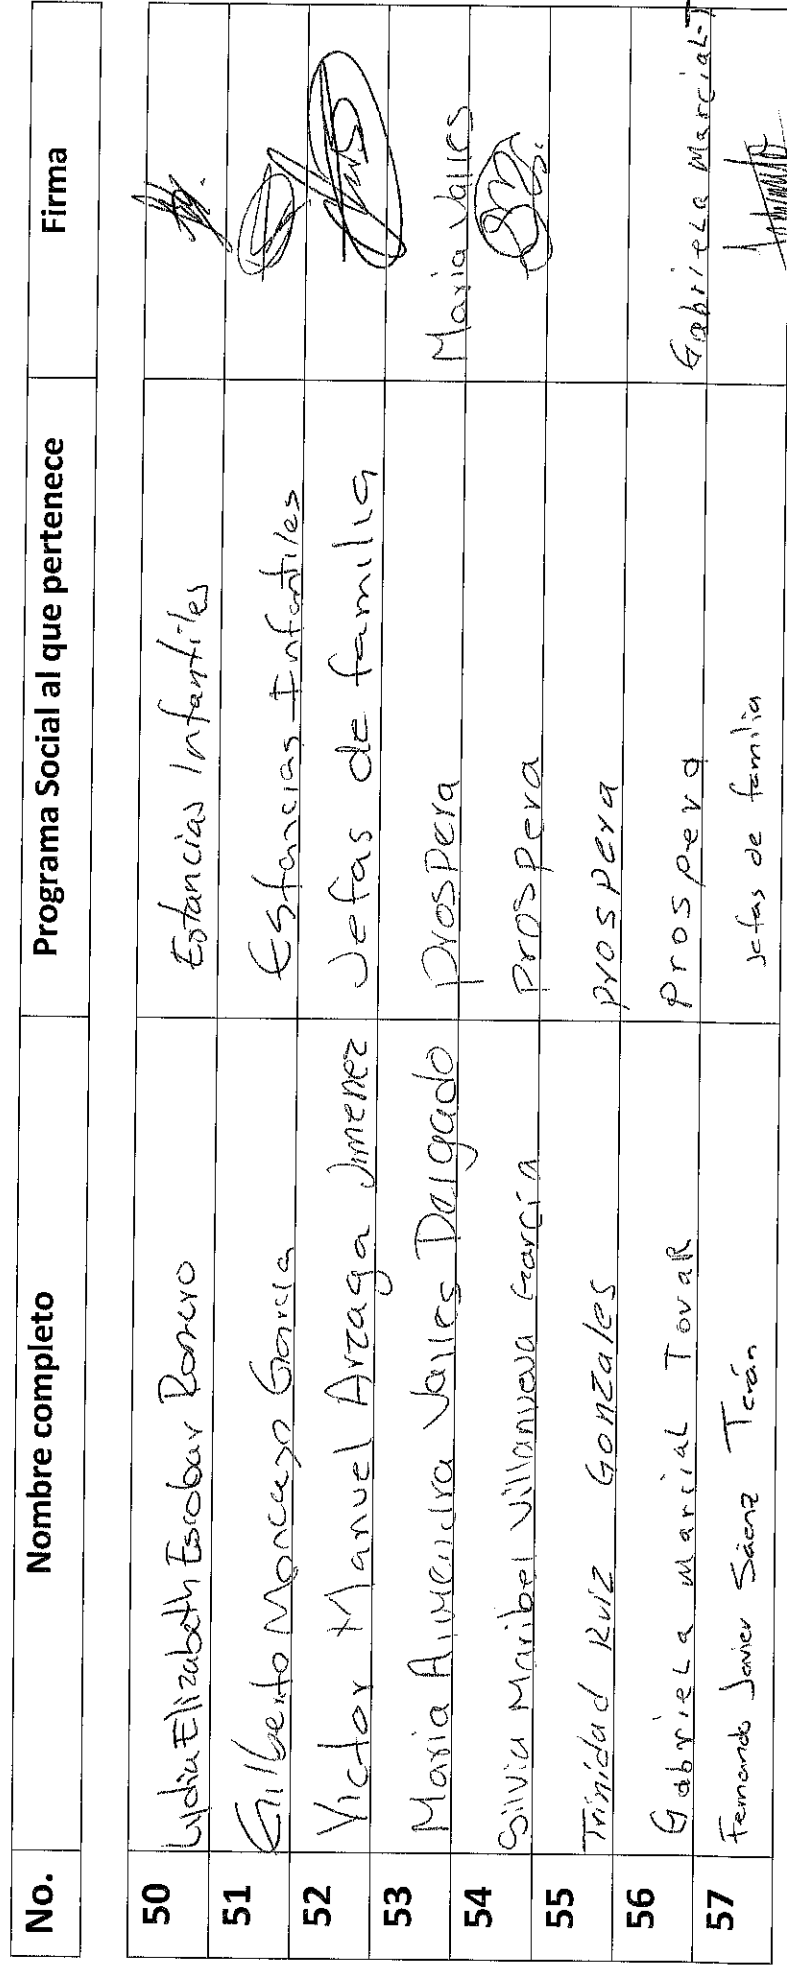 No. Nombre completo Programa Social al que pertenece Firma
50 Lydia Elizabeth Escobar Romero Estancias Infantiles
51 Gilberto Moncayo García Estancias Infantiles
52 Victor Manuel Arzaga Jimenez Jefas de familia
53 Maria Almendra Valles Delgado Prospera Maria Valles
54 Silvia Maribel Villanueva García Prospera
55 Trinidad Ruiz Gonzales Prospera
56 Gabriela Marcial Tovar Prospera Gabriela Marcial T
57 Fernando Javier Sáenz Terán Jefas de familia